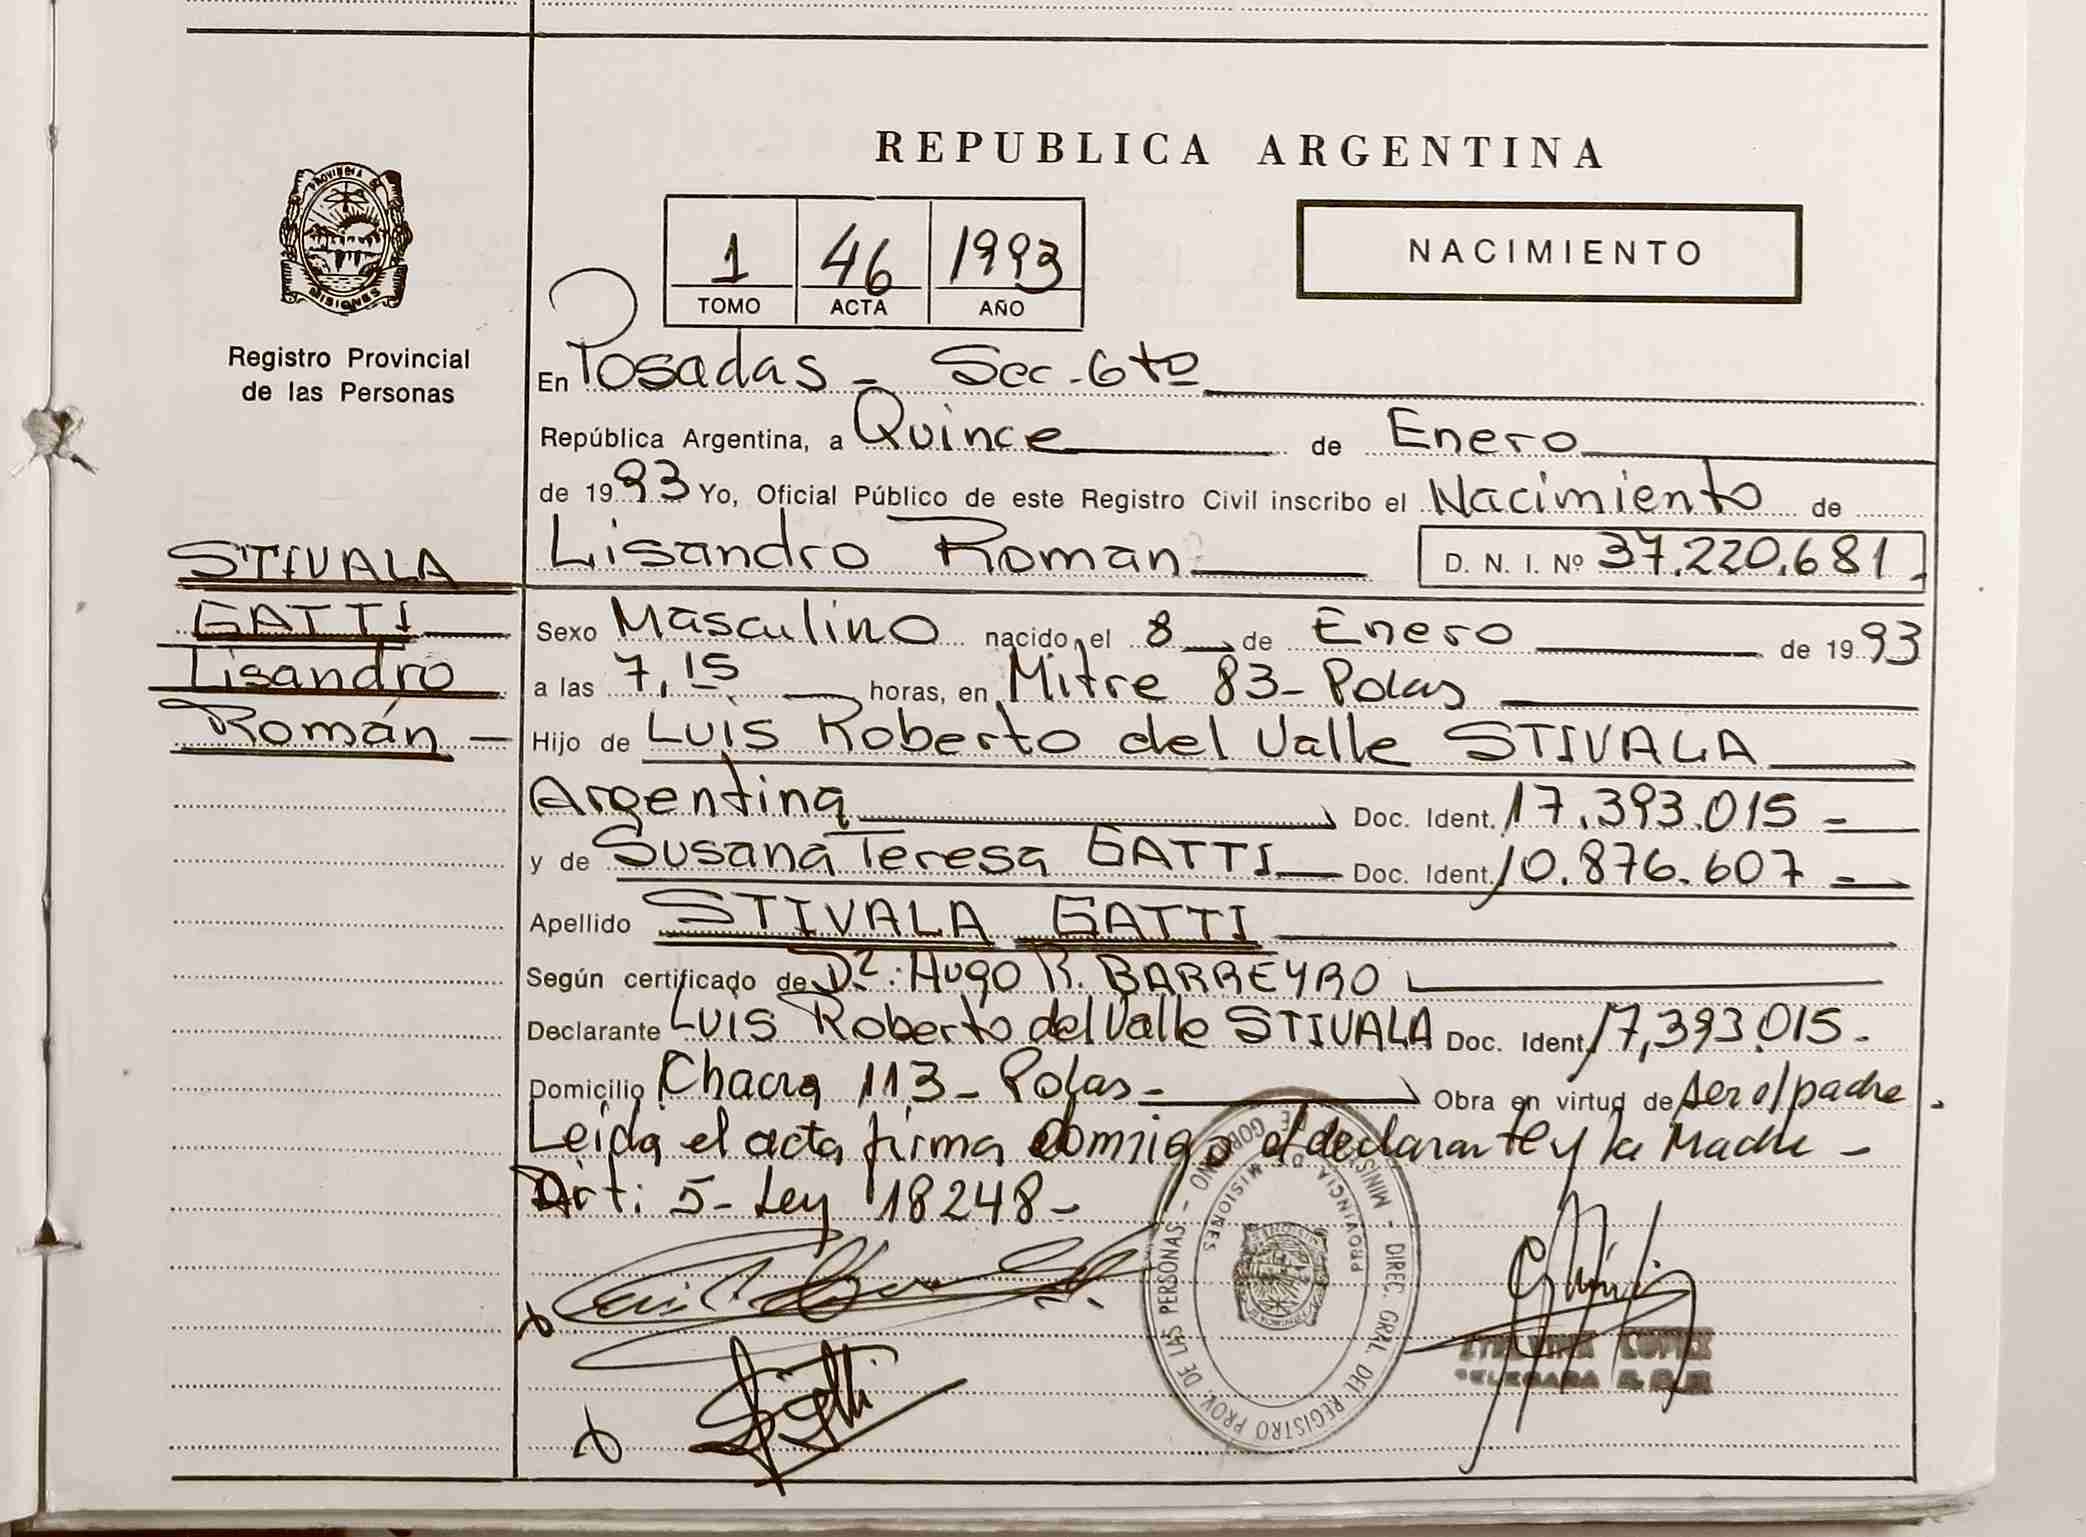 REPUBLICA ARGENTINA
PROVINCIA DE
MISIONES
Registro Provincial
de las Personas
1 46 1993
TOMO ACTA AÑO
NACIMIENTO
En Posadas - Sec. 6to
República Argentina, a Quince de Enero
de 1993 Yo, Oficial Público de este Registro Civil inscribo el Nacimiento de
Lisandro Roman D. N. I. Nº 37.220.681.
STIVALA
GATTI
Lisandro
Román -
Sexo Masculino nacido el 8 de Enero de 1993
a las 7,15 horas, en Mitre 83- Pdas
Hijo de Luis Roberto del Valle STIVALA
Argentina Doc. Ident. 17.393.015 -
y de Susana Teresa GATTI Doc. Ident. 10.876.607 -
Apellido STIVALA GATTI
Según certificado de Dr. Hugo R. BARREYRO
Declarante Luis Roberto del Valle STIVALA Doc. Ident. 17,393.015.
Domicilio Chacra 113- Pdas- Obra en virtud de ser el padre.
Leida el acta firma conmigo el declarante y la Madre -
Art: 5- Ley 18248-
MINISTERIO DE GOBIERNO - DIREC. GRAL. DEL REGISTRO PROV. DE LAS PERSONAS -
PROVINCIA DE MISIONES
LOPEZ
DELEGADA